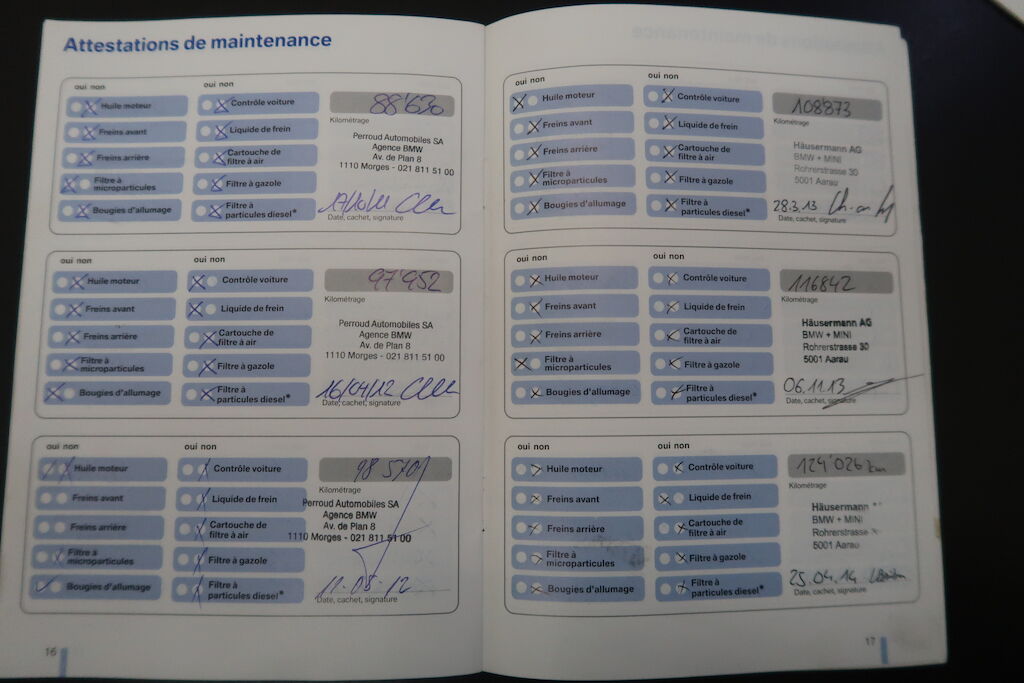 Attestations de maintenance
oui non
oui non
Huile moteur
Contrôle voiture
88'630
Kilométrage
Freins avant
Liquide de frein
Perroud Automobiles SA
Agence BMW
Av. de Plan 8
1110 Morges - 021 811 51 00
Freins arrière
Cartouche de
filtre à air
Filtre à
microparticules
Filtre à gazole
Bougies d'allumage
Filtre à
particules diesel*
Date, cachet, signature
oui non
oui non
Huile moteur
Contrôle voiture
97'952
Kilométrage
Freins avant
Liquide de frein
Perroud Automobiles SA
Agence BMW
Av. de Plan 8
1110 Morges - 021 811 51 00
Freins arrière
Cartouche de
filtre à air
Filtre à
microparticules
Filtre à gazole
Bougies d'allumage
Filtre à
particules diesel*
16/04/12
Date, cachet, signature
oui non
oui non
Huile moteur
Contrôle voiture
98 570
Kilométrage
Freins avant
Liquide de frein
Perroud Automobiles SA
Agence BMW
Av. de Plan 8
1110 Morges - 021 811 51 00
Freins arrière
Cartouche de
filtre à air
Filtre à
microparticules
Filtre à gazole
Bougies d'allumage
Filtre à
particules diesel*
11.05.12
Date, cachet, signature
16
oui non
oui non
Huile moteur
Contrôle voiture
108'873
Kilométrage
Freins avant
Liquide de frein
Häusermann AG
BMW + MINI
Rohrerstrasse 30
5001 Aarau
Freins arrière
Cartouche de
filtre à air
Filtre à
microparticules
Filtre à gazole
Bougies d'allumage
Filtre à
particules diesel*
28.3.13
Date, cachet, signature
oui non
oui non
Huile moteur
Contrôle voiture
116842
Kilométrage
Freins avant
Liquide de frein
Häusermann AG
BMW + MINI
Rohrerstrasse 30
5001 Aarau
Freins arrière
Cartouche de
filtre à air
Filtre à
microparticules
Filtre à gazole
Bougies d'allumage
Filtre à
particules diesel*
06.11.13
Date, cachet, signature
oui non
oui non
Huile moteur
Contrôle voiture
124'026 km
Kilométrage
Freins avant
Liquide de frein
Häusermann
BMW + MINI
Rohrerstrasse
5001 Aarau
Freins arrière
Cartouche de
filtre à air
Filtre à
microparticules
Filtre à gazole
Bougies d'allumage
Filtre à
particules diesel*
25.04.14
Date, cachet, signature
17